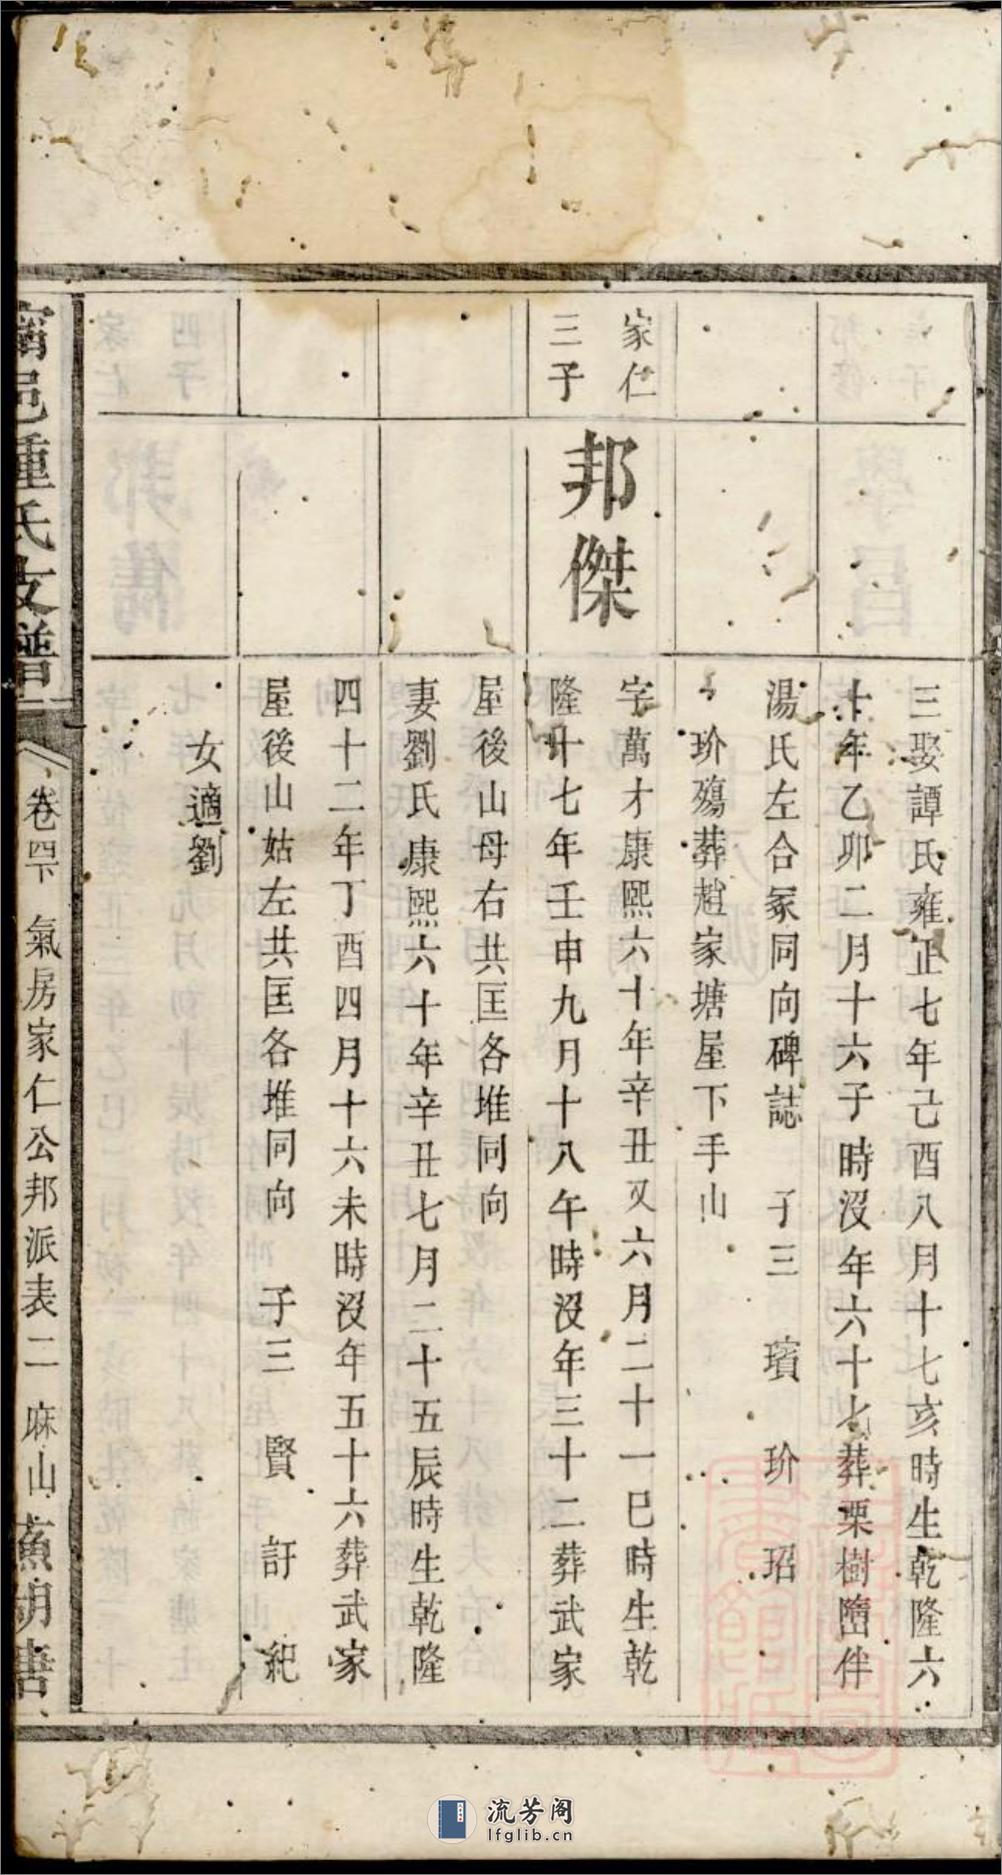 三娶譚氏雍正七年己酉八月十七亥時生乾隆六
十年乙卯二月十六子時沒年六十七葬栗樹𡐦伴
湯氏左合冢同向碑誌 子三 璸 玠 玿
玠殤葬趙家塘屋下手山
家仁
三子
邦傑
字萬才康熙六十年辛丑又六月二十一巳時生乾
隆十七年壬申九月十八午時沒年三十二葬武家
屋後山母右共匡各堆同向
妻劉氏康熙六十年辛丑七月二十五辰時生乾隆
四十二年丁酉四月十六未時沒年五十六葬武家
屋後山姑左共匡各堆同向 子三 賢 訏 紀
女適劉
甯邑鍾氏支譜
卷四下 氣房家仁公邦派表二 麻山
流芳阁
lfglib.cn